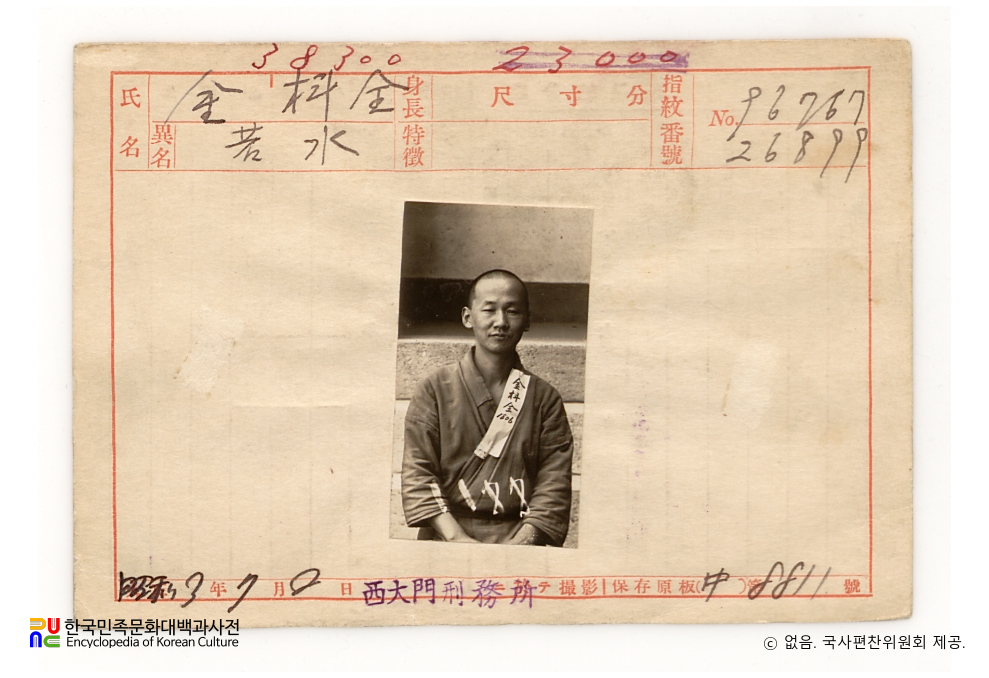 38300
23000
氏名
金 枓 全
異名
若 水
身長
尺 寸 分
特徵
指紋番號
No. 96767
26899
金
枓
全
1606
昭和3年7月 日 西大門刑務所テ撮影 保存原板(中)第8811號
한국민족문화대백과사전
Encyclopedia of Korean Culture
ⓒ 없음. 국사편찬위원회 제공.